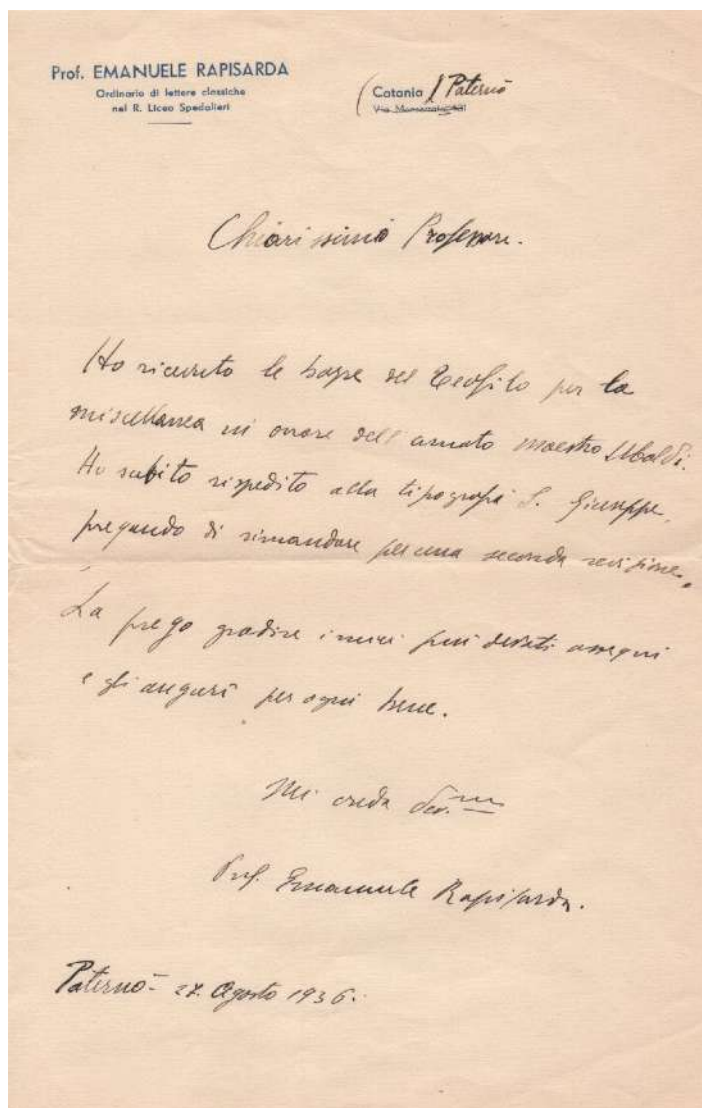 Prof. EMANUELE RAPISARDA
Ordinario di lettere classiche
nel R. Liceo Spedalieri
(Catania / Paternò
Via
Chiarissimo Professore.
Ho ricevuto le bozze del Teofilo per la
miscellanea in onore dell'amato maestro Ubaldi.
Ho subito rispedito alla tipografia S. Giuseppe,
pregando di rimandare per una seconda revisione.
La prego gradire i miei più devoti ossequi
e gli auguri per ogni bene.
Mi creda dev.mo
Prof. Emanuele Rapisarda.
Paternò - 27. Agosto 1936.